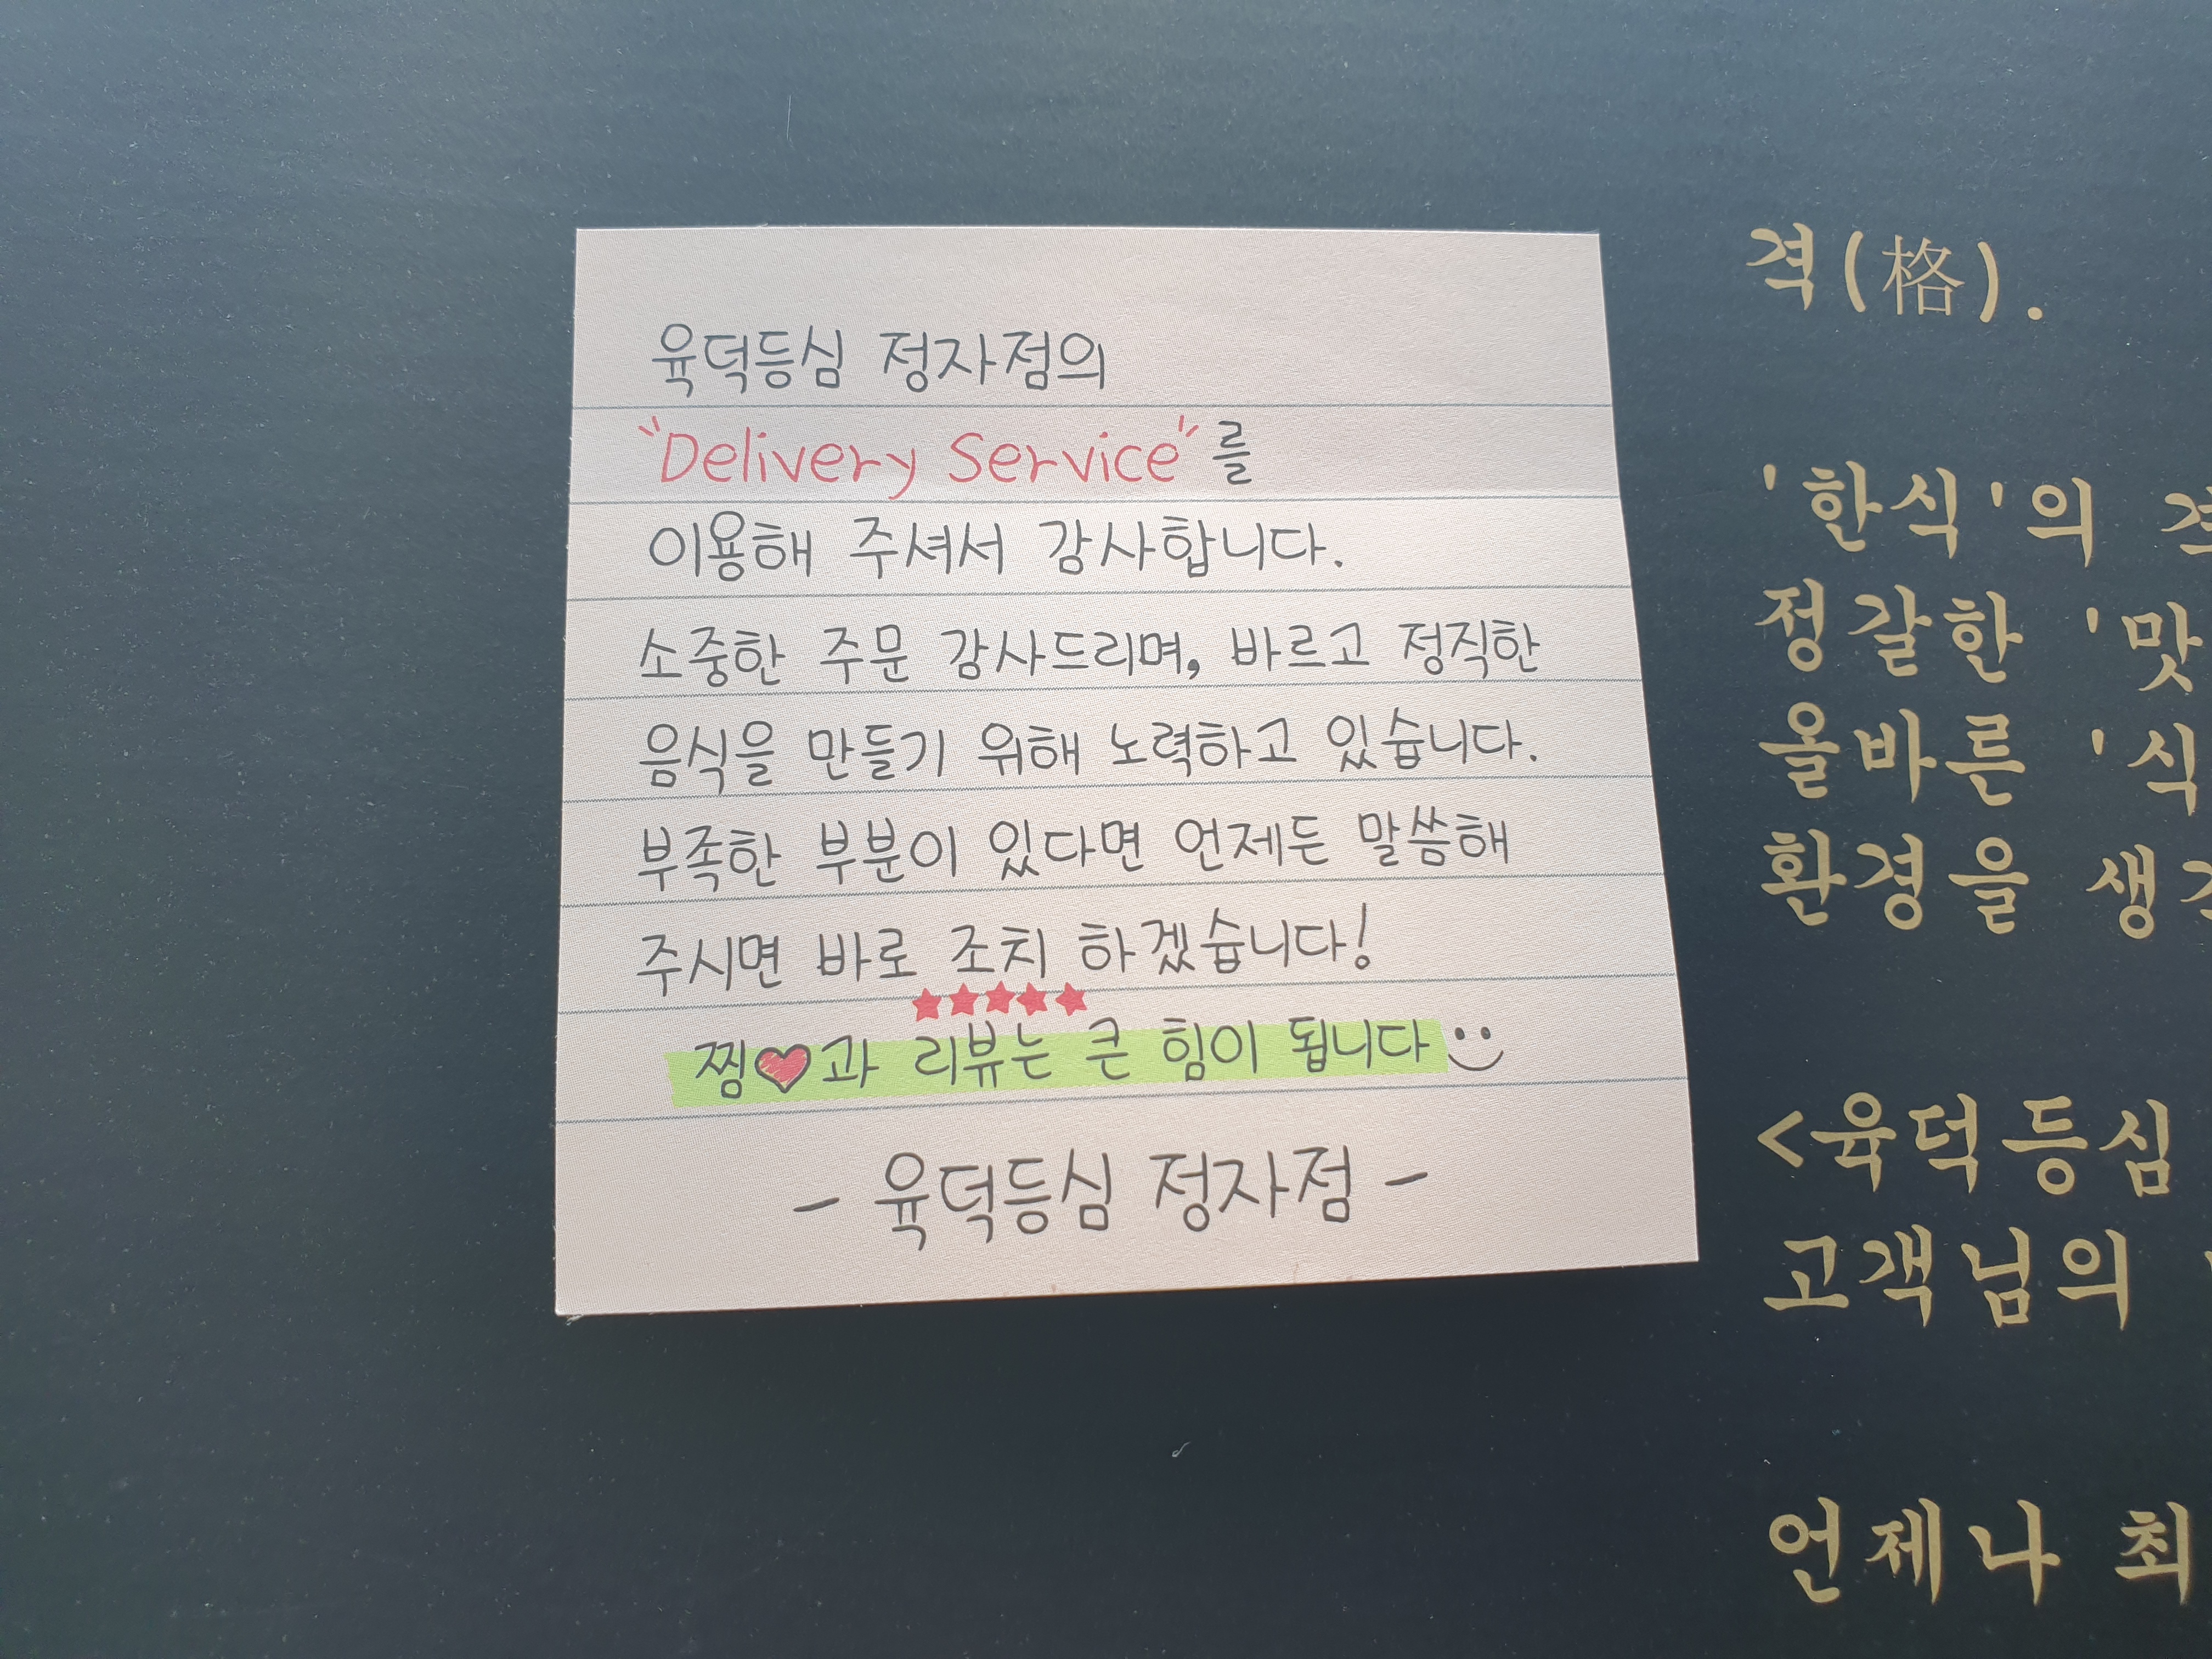 육덕등심 정자점의
"Delivery Service"를
이용해 주셔서 감사합니다.
소중한 주문 감사드리며, 바르고 정직한
음식을 만들기 위해 노력하고 있습니다.
부족한 부분이 있다면 언제든 말씀해
주시면 바로 조치 하겠습니다!
★★★★★
찜♥과 리뷰는 큰 힘이 됩니다
- 육덕등심 정자점 -
격(格).
'한식'의
정갈한 '맛
올바른 '식
환경을
<육덕등심
고객님의
언제나 최